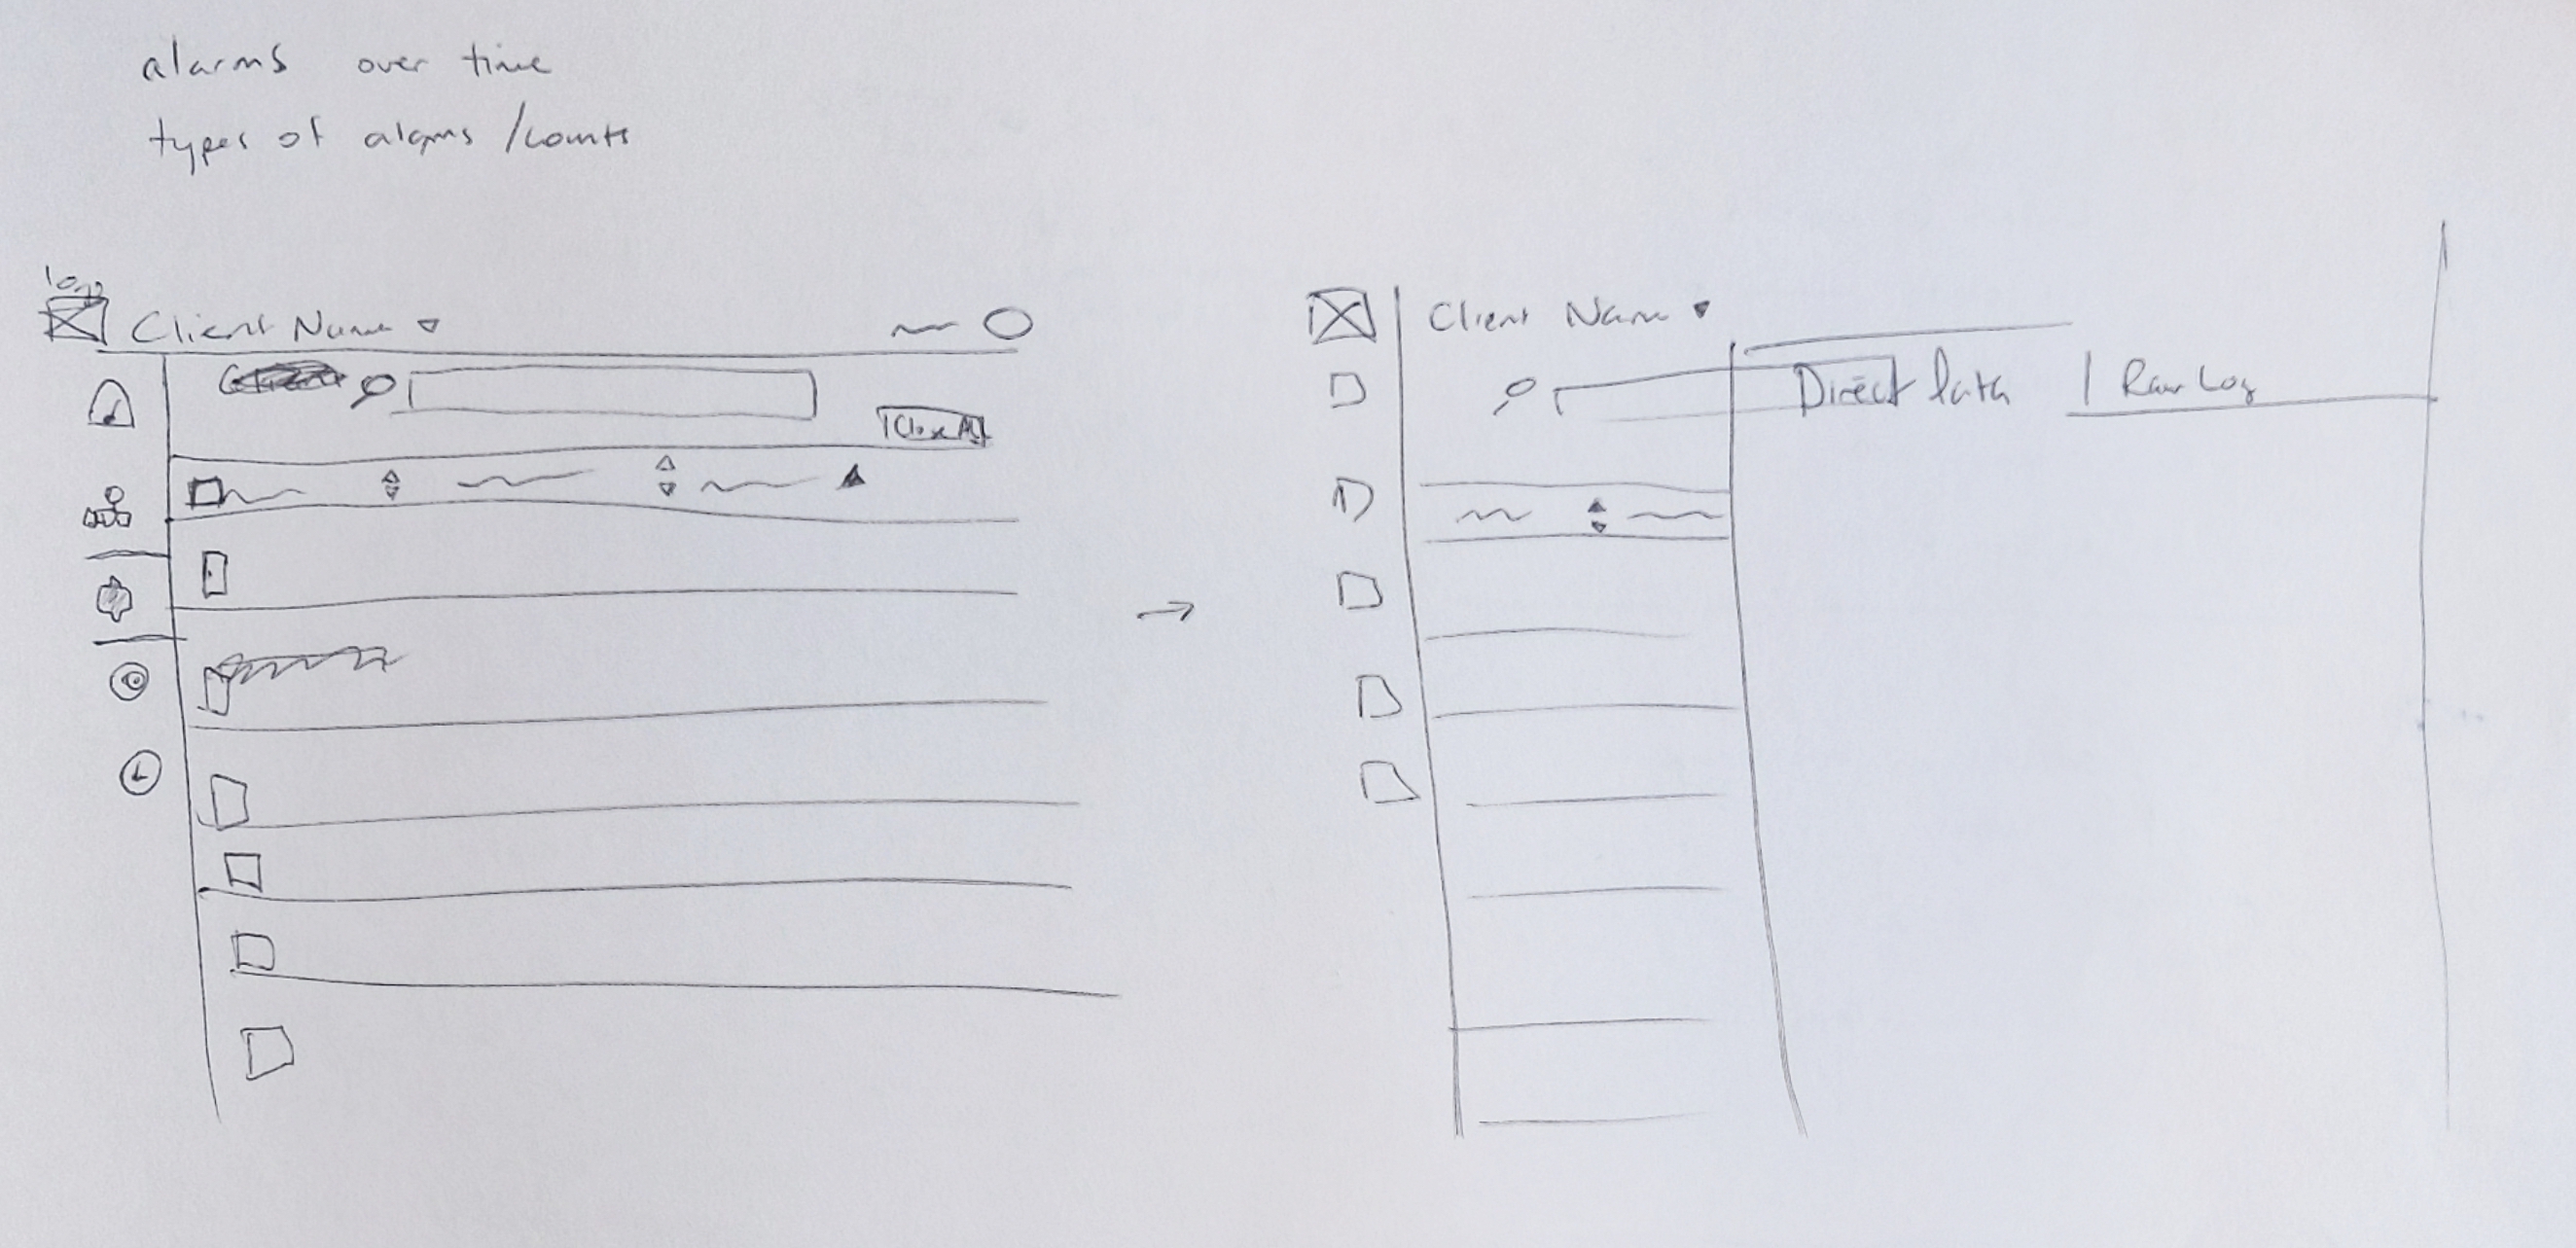 alarms over time
types of alarms / counts
logo
Client Name
Close All
Client Name
Direct Path | Raw Log